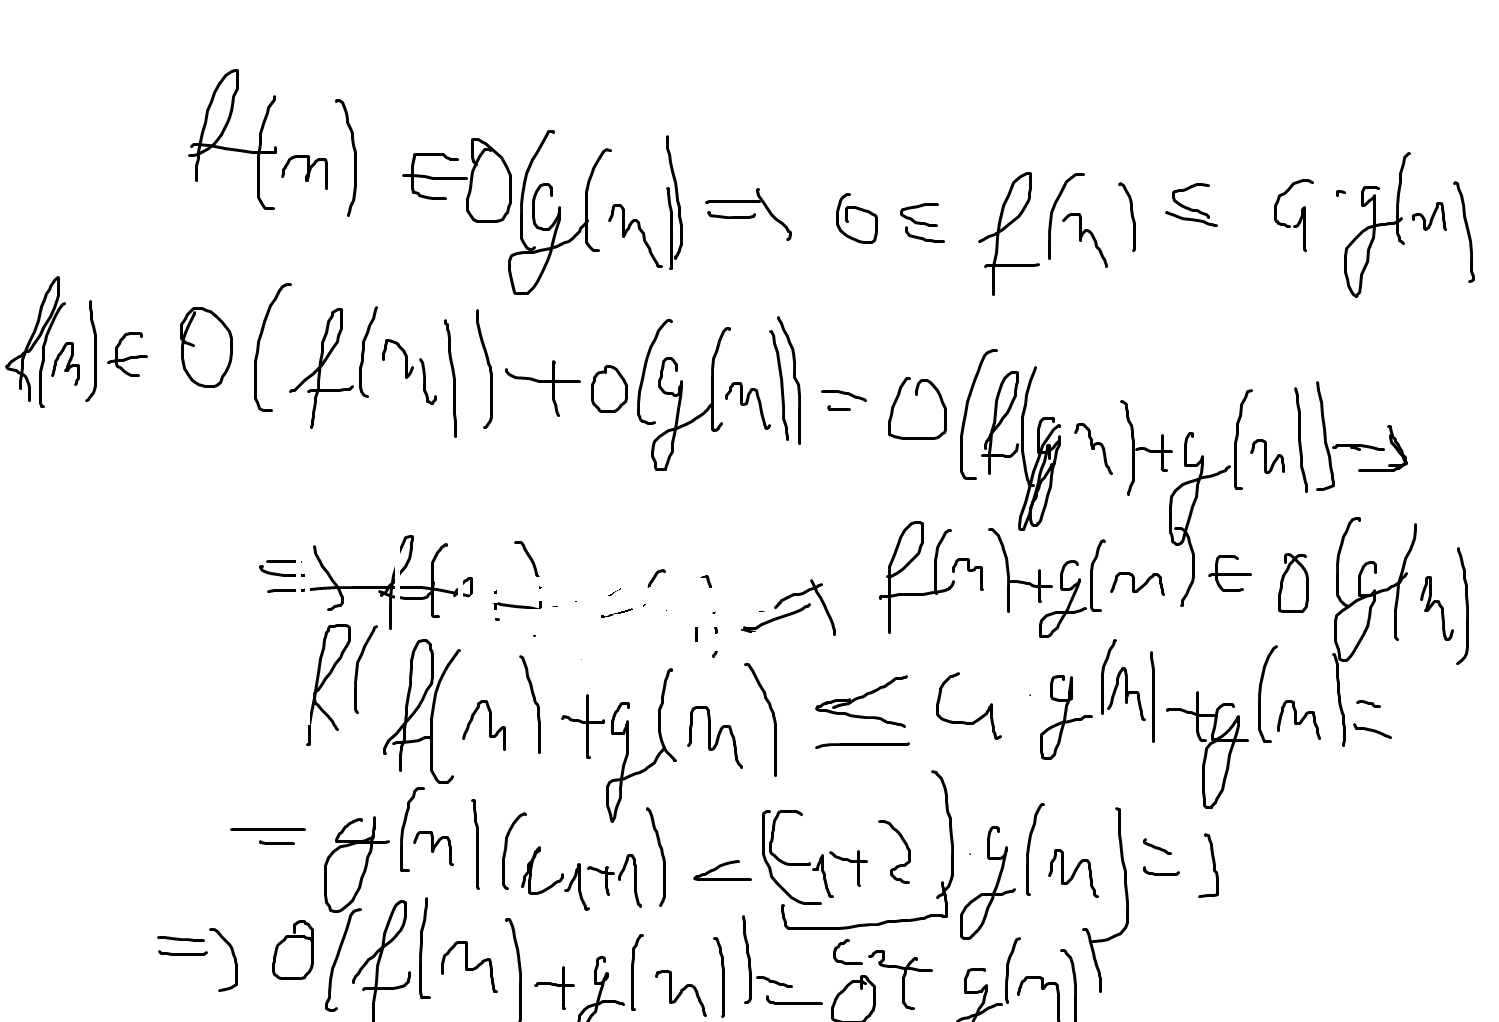 f(n) ∈ O(g(n)) => 0 ≤ f(n) ≤ C1 · g(n)
f(n) ∈ O(f(n)) + O(g(n)) = O(f(n) + g(n)) =>
=> f( => f(n) + g(n) ∈ O(g(n)
f(n) + g(n) ≤ C1 · g(n) + g(n) =
= g(n)(C1+1) < (C1+2) · g(n) =>
=> O(f(n) + g(n)) = O g(n)